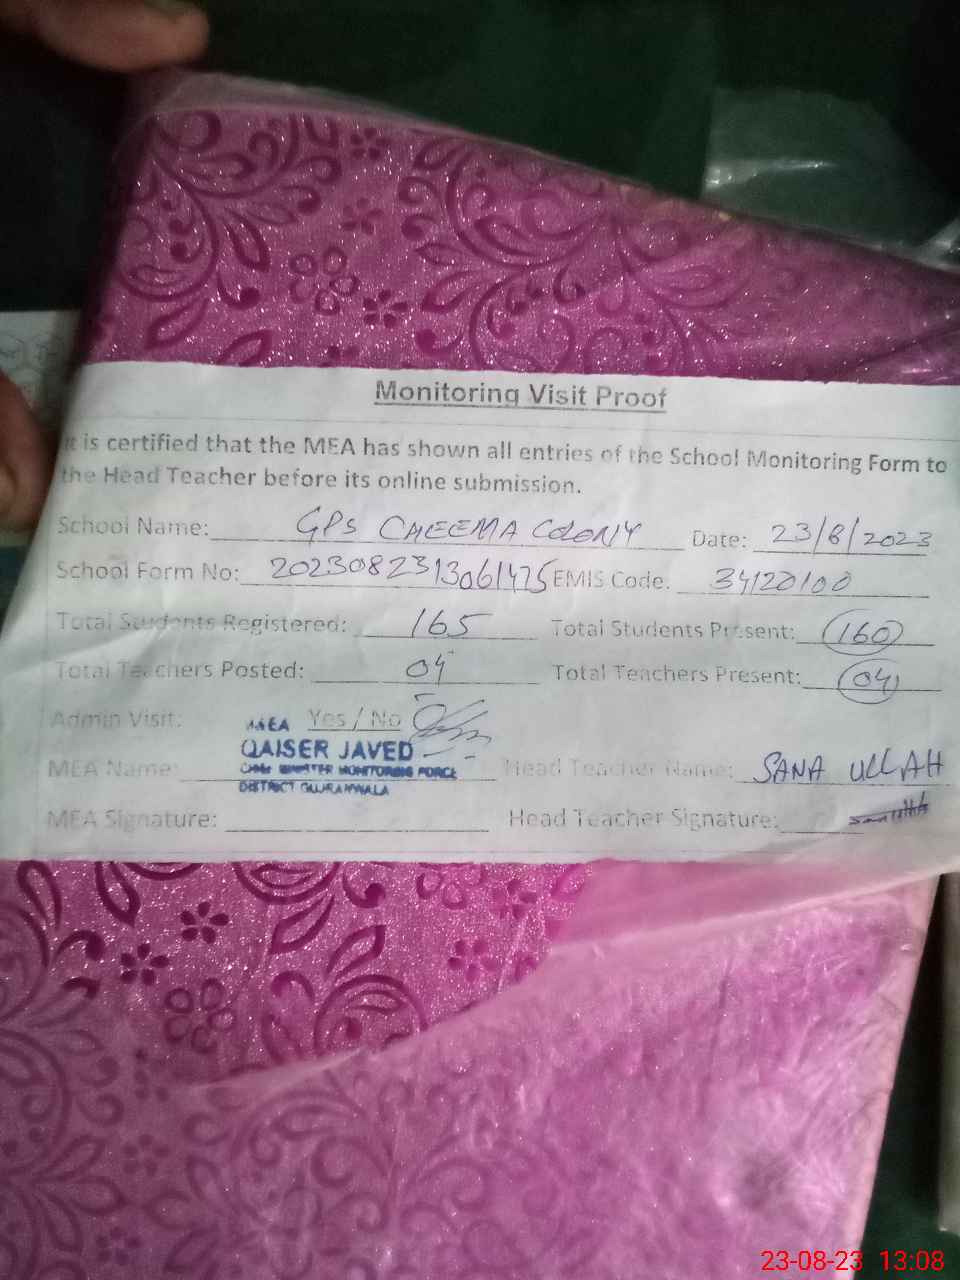 Monitoring Visit Proof
It is certified that the MEA has shown all entries of the School Monitoring Form to
the Head Teacher before its online submission.
School Name: GPS CHEEMA COLONY Date: 23/8/2023
School Form No: 2023082313061475 EMIS Code. 34120100
Total Students Registered: 165 Total Students Present: 160
Total Teachers Posted: 04 Total Teachers Present: 04
Admin Visit: Yes / No
MEA
QAISER JAVED
MEA Name: CHIEF MINISTER MONITORING FORCE Head Teacher Name: SANA ULLAH
DISTRICT GUJRANWALA
MEA Signature: Head Teacher Signature:
23-08-23 13:08